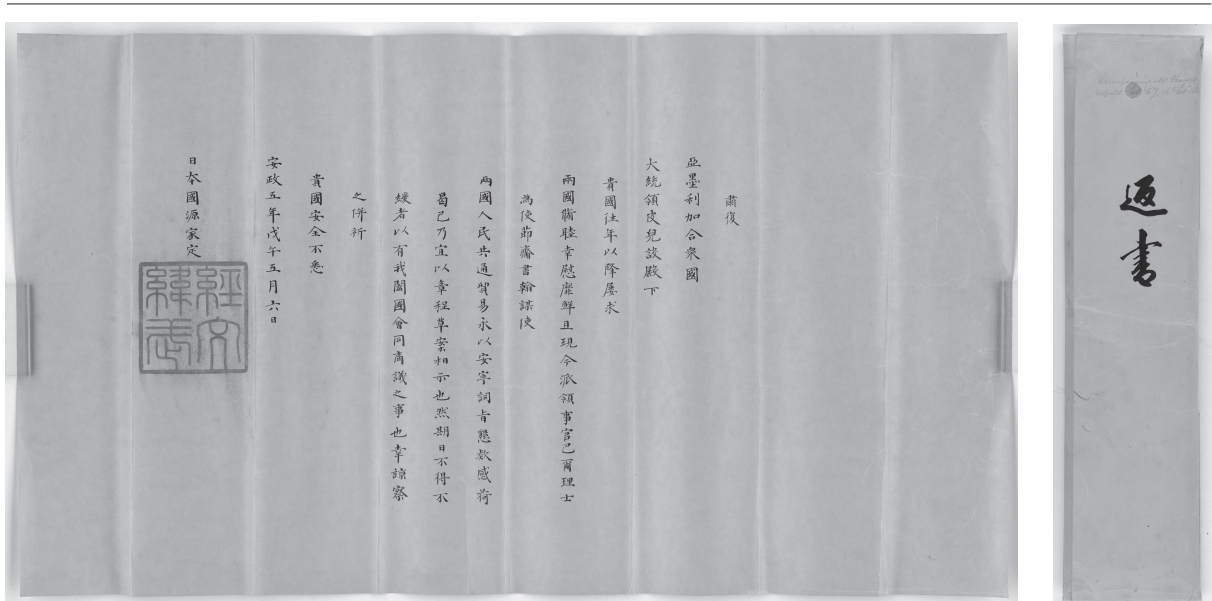 肅復
亞墨利加合衆國
大統領皮兒設殿下
貴國往年以降屡求
兩國脩睦幸慰靡鮮且現今派領事官巴爾理士
為使節齎書翰謀使
兩國人民共通貿易永以安寧詞旨懇欵感荷
曷已乃宜以章程草案相示也然期日不得不
緩者以有我闔國會同商議之事也幸諒察
之併祈
貴國安全不悉
安政五年戊午五月六日
日本國源家定
經文
緯武
返書